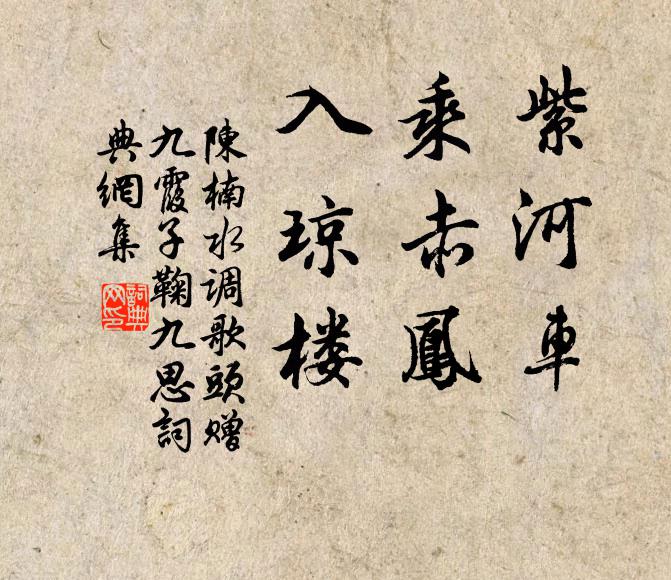 紫河車
乘赤鳳
入琼楼
陳楠水调歌頭赠
九霞子鞠九思詞
典網集
詞典网印